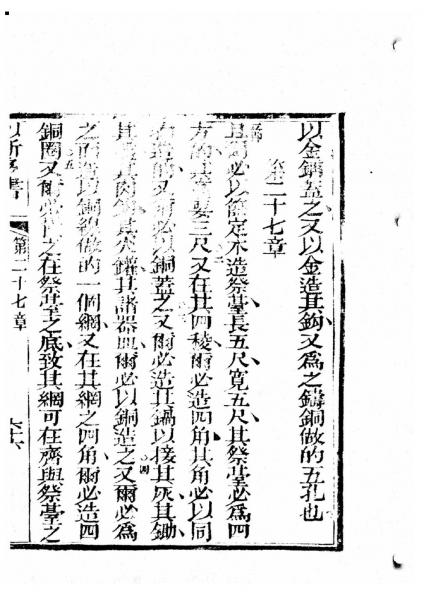 以金鑲蓋之又以金造其鈎又為之鑄銅做的五孔也
第二十七章
且爾必以簡定木造祭臺長五尺寬五尺其祭臺必為四
方的其高要三尺又在其四稜爾必造四角其角必以同
的又爾必以銅蓋之又爾必造其鍋以接其灰其鋤
其其肉其火鑵其諸器皿爾必以銅造之又爾必為
之而造以銅線做的一個網又在其網之四角爾必造四
銅圈又爾必之在祭臺之底致其網可在齊與祭臺之
書 第二十七章